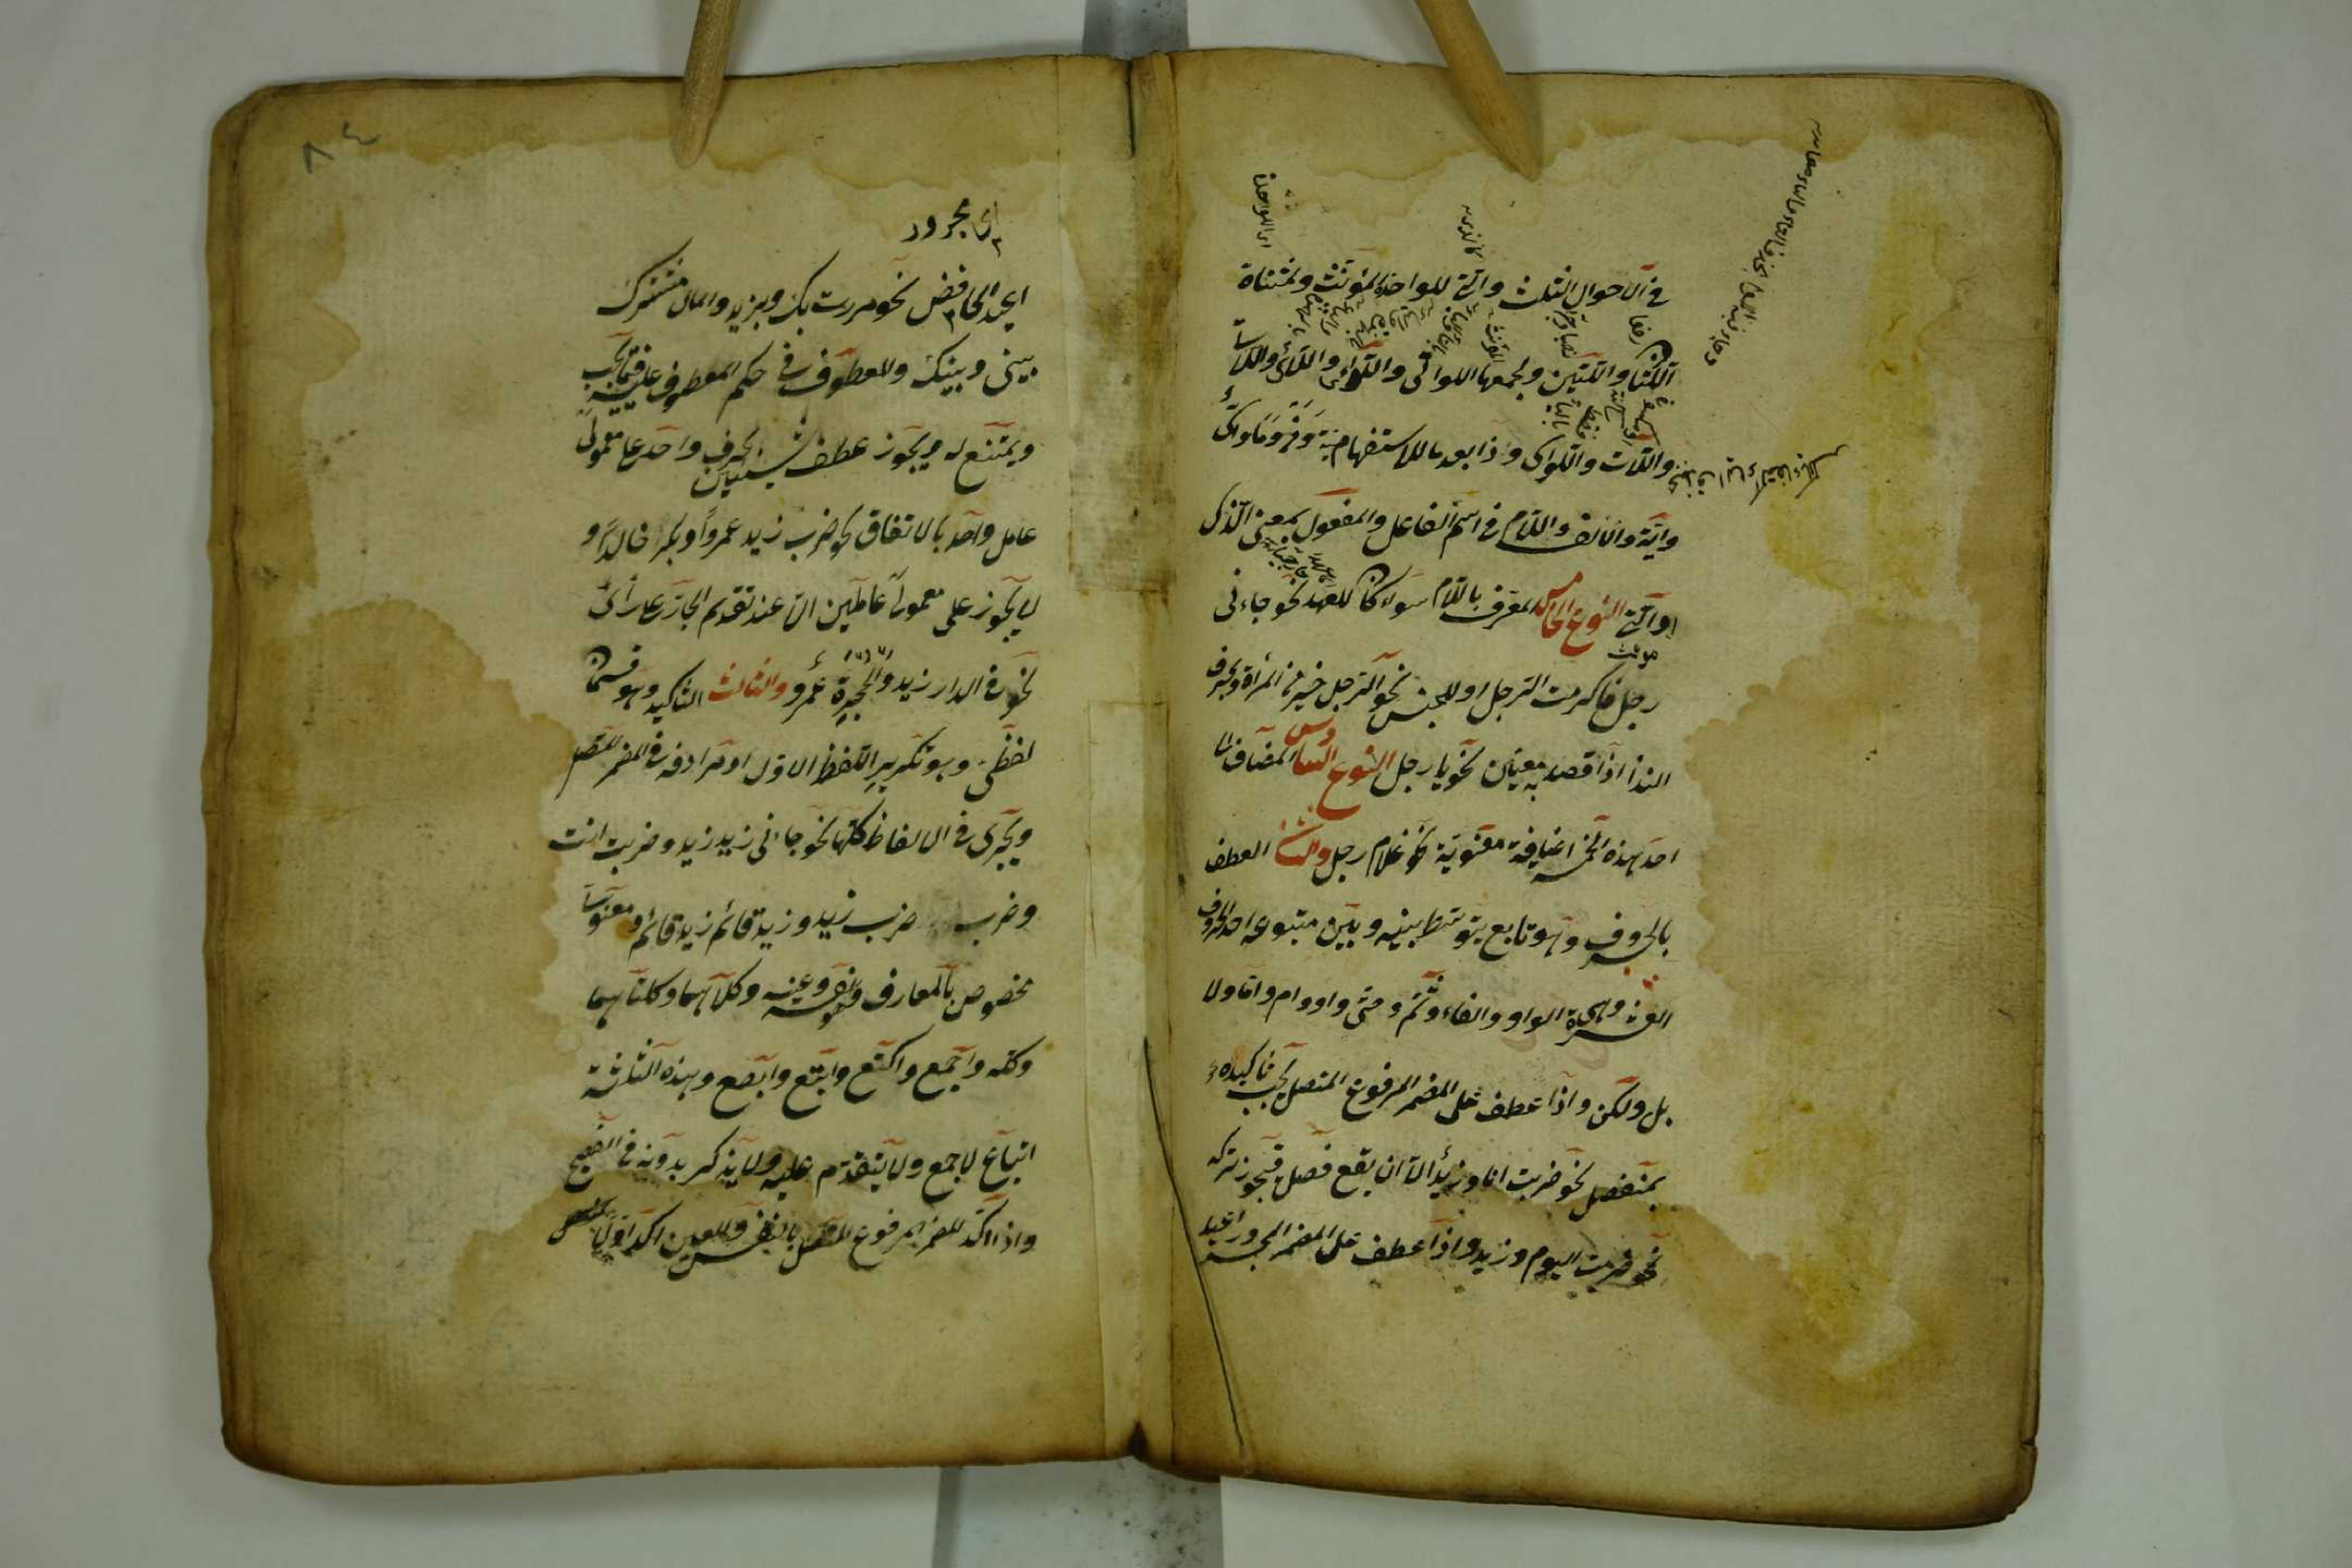 في الاحوال الثلث والتي للواحدة المؤنث ولمثناة
اللتان واللتين ولجمعها اللواتي واللوائي واللائي واللات
واللآت واللواي وذا بعد ما للاستفهامية ومن وما واي
واية والالف واللام في اسم الفاعل والمفعول بمعنى الذي
او التي النوع الخامس المعرف باللام سواء كان للعهد نحو جاءني
رجل فاكرمت الرجل او للجنس نحو الرجل خير من المرأة وبحرف
النداء اذا قصد به معين نحو يا رجل النوع السادس المضاف الى
احد هذه الخمسة اضافة معنوية نحو غلام رجل والثاني العطف
بالحروف وهو تابع يتوسط بينه وبين متبوعه احد الحروف
العشرة وهي الواو والفاء وثم وحتى واو وام واما ولا
بل ولكن واذا عطف على المضمر المرفوع المتصل يجب تاكيده
بمنفصل نحو ضربت انا وزيد الا ان يقع فصل فيجوز تركه
نحو ضربت اليوم وزيد واذا عطف على المضمر المجرور اعيد
٨٤
اي مجرور
اعيد الخافض نحو مررت بك وبزيد والمال مشترك
بيني وبينك والمعطوف في حكم المعطوف عليه فيما يجب
ويمتنع له ويجوز عطف شيئين بحرف واحد على معمولي
عامل واحد بالاتفاق نحو ضرب زيد عمروا وبكر خالدا و
لا يجوز على معمولي عاملين الا عند تقدم الجار على رأي
نحو في الدار زيد والحجرة عمرو والثالث التاكيد وهو قسمان
لفظي وهو تكرير اللفظ الاول او مرادفه في المضمر المتصل
ويجري في الالفاظ كلها نحو جاءني زيد زيد وضربت انت
وضرب ضرب زيد وزيد قائم زيد قائم ومعنوي
مخصوص بالمعارف وهو نفسه وعينه وكلاهما وكلتاهما
وكله واجمع واكتع وابتع وابصع وهذه الثلثة
اتباع لاجمع ولا يتقدم عليه ولا يذكر بدونه في الفصيح
واذا اكد المضمر المرفوع المتصل بالنفس والعين اكد اولا بمنفصل